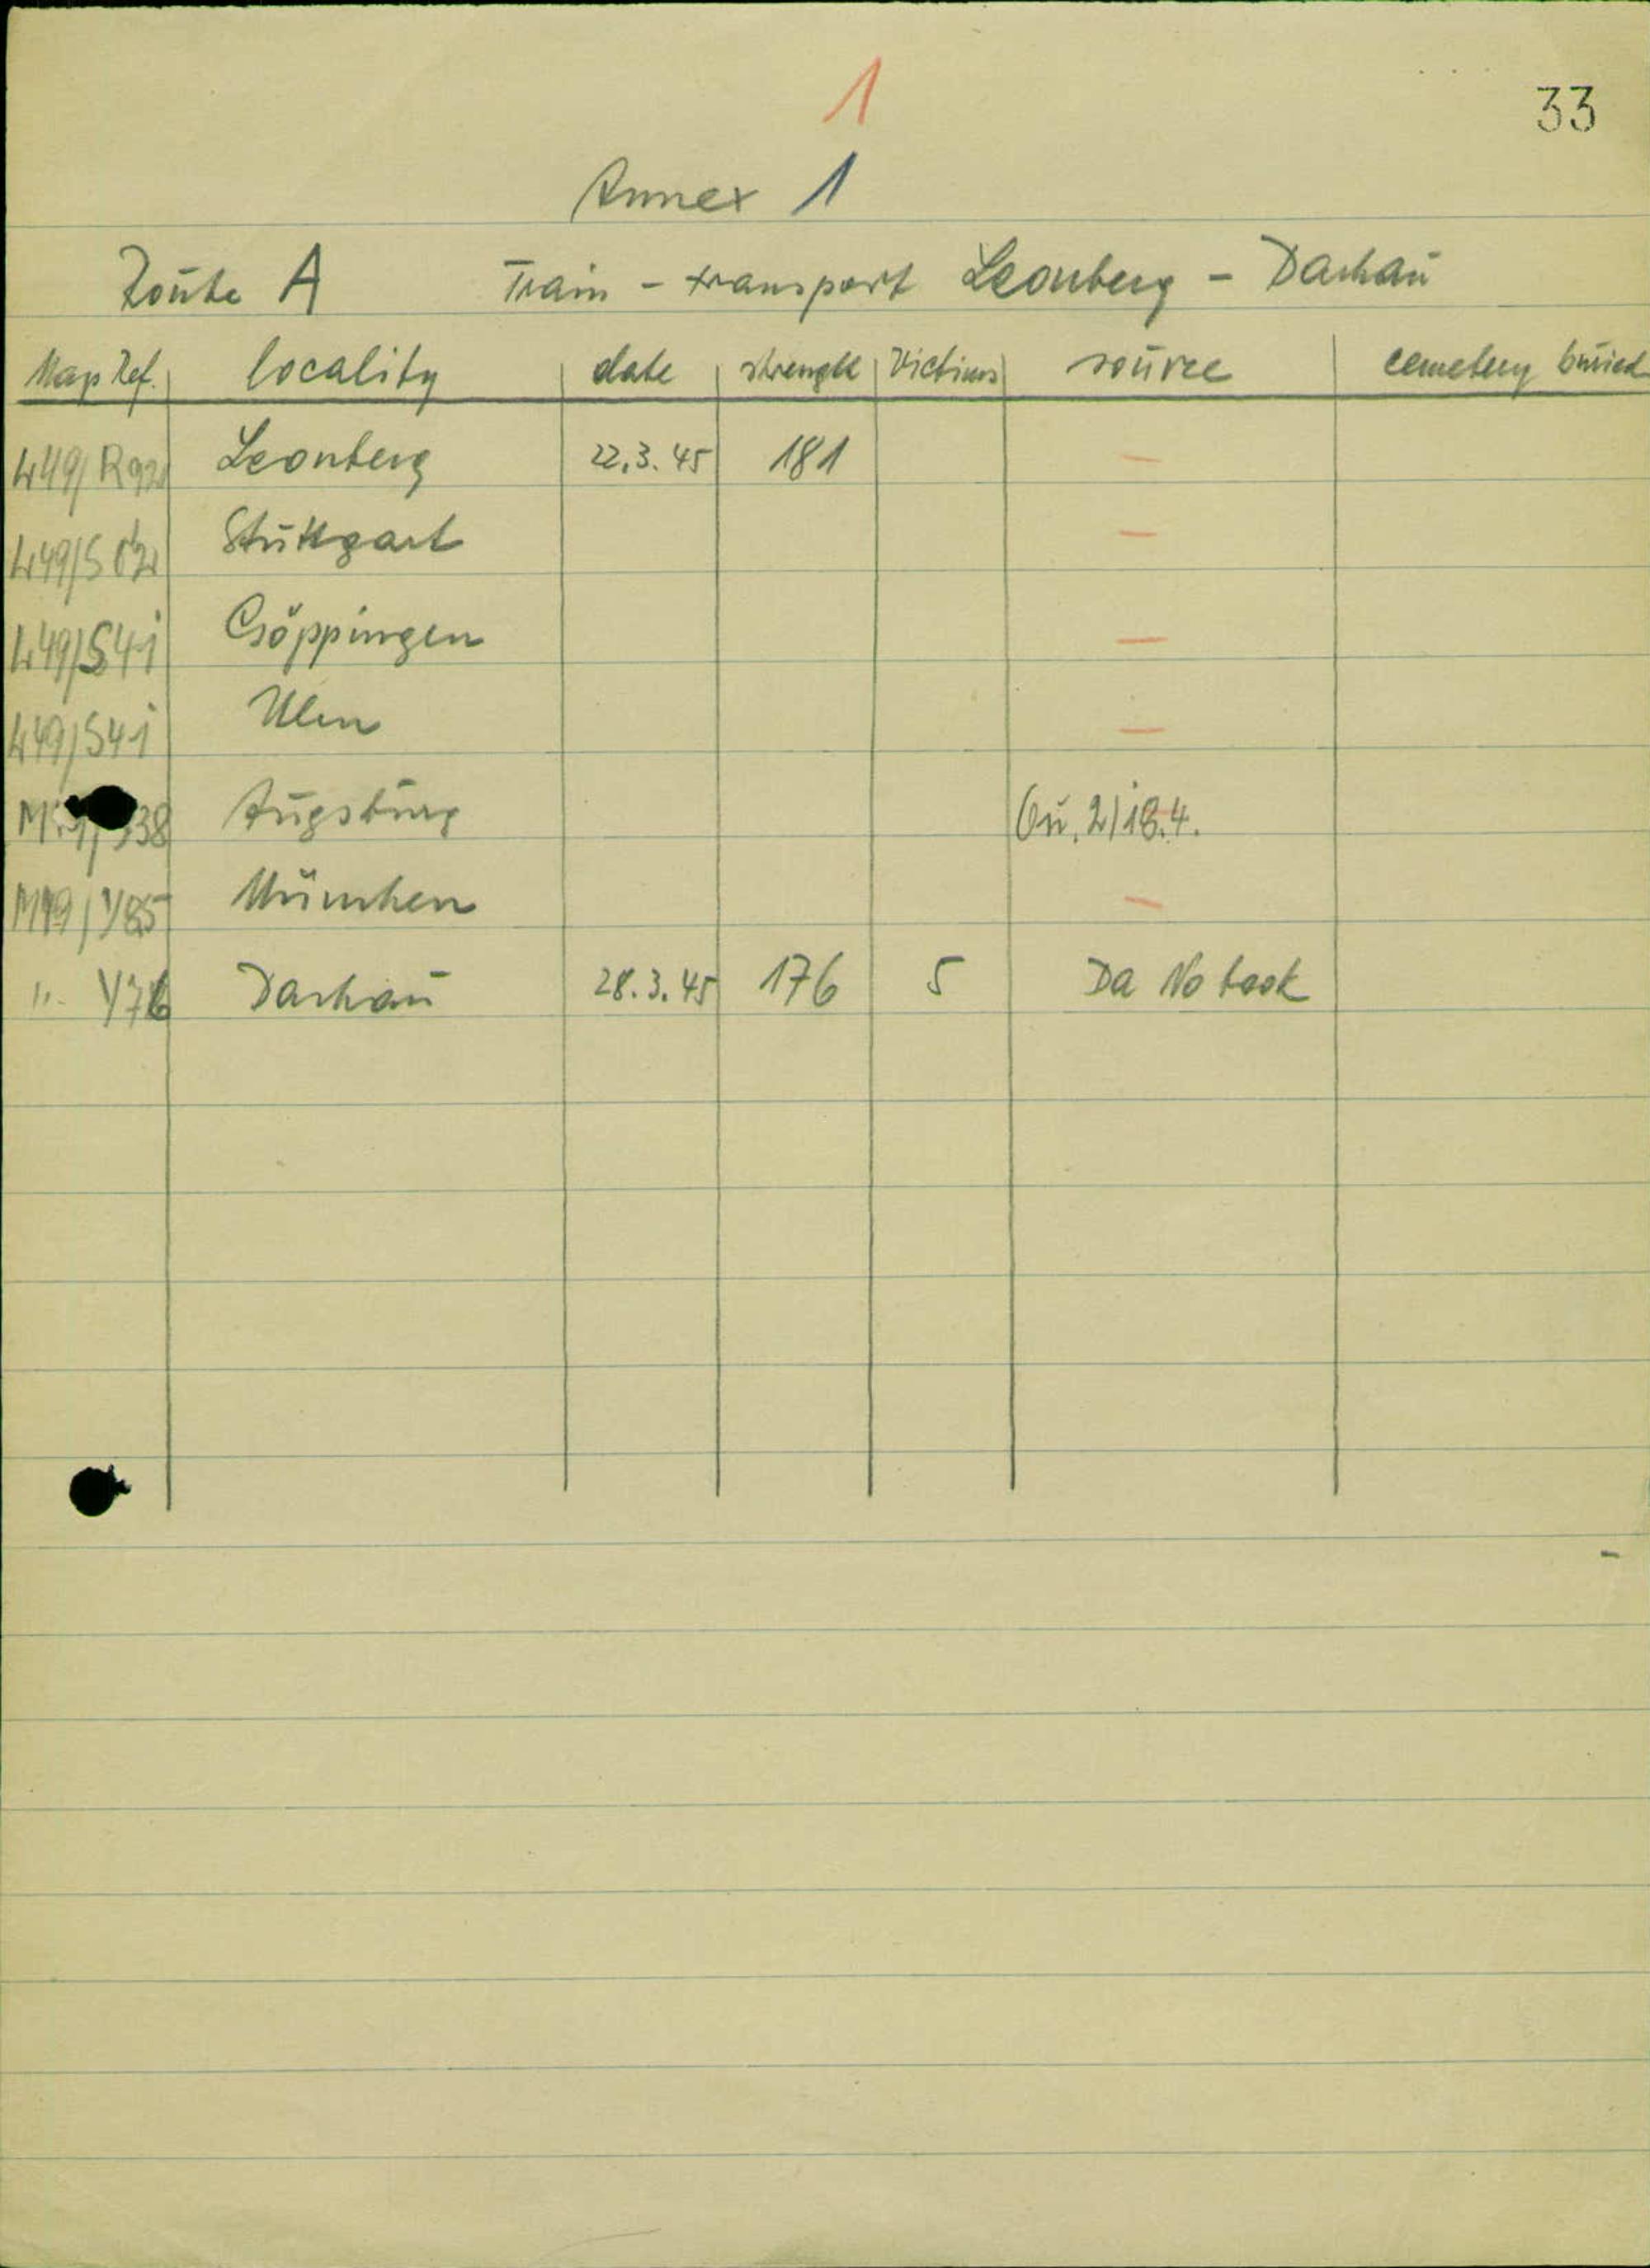 1
33
Annex 1
Route A Train - transport Leonberg - Dachau
Map Ref. locality date strength Victims source cemetery buried
L49/R92 Leonberg 22.3.45 181 —
L49/S02 Stuttgart —
L49/S41 Göppingen —
L49/S41 Ulm —
38 Augsburg Gu. 2/18.4.
M49/Y85 München —
" Y76 Dachau 28.3.45 176 5 Da No book